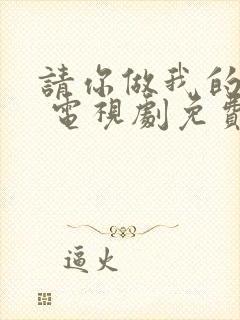 請你做我的
電視劇免費
逼火